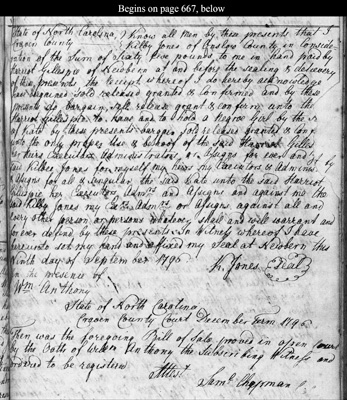 Begins on page 667, below
State of North Carolina
Craven County
Know all men by these presents that I
Kilby Jones of Onslow County in conside-
ration of the Sum of Sixty five pounds to me in hand paid by
Harriot Gillespie of Newbern at and before the sealing & delivery
of these presents the receipt whereof I do hereby acknowledge
have bargained sold released granted & confirmed and by these
presents do bargain, sell release grant & confirm unto the
Harriot Gillespie to have and to hold a Negroe Girl by the
of Kate by these presents bargain sold released granted & conf
unto the only proper Use & behoof of the said Harriot Gilles
her heirs Executors Administrators or Assigns for ever and
said Kilbee Jones for myself my heirs my Executors & Adminis
Assigns for all & singular the said Kate unto the said Harriot
Gillespie her Executors, Admrs and Assigns and against me the
said Kilby Jones my Exrs Admrs or Assigns against all and
every other person or persons whatever shall and will warrant and
for ever defend by these presents. In Witness whereof I have
hereunto set my hand and affixed my Seal at Newbern this
Ninth day of September 1796
K. Jones Seal
In the presence of
Wm. Anthony
State of North Carolina
Craven County Court December Term 1796
Then was the foregoing Bill of Sale proved in open Court
by the Oath of William Anthony the Subscribing Witness and
Ordered to be registered
Attest.
Saml. Chapman